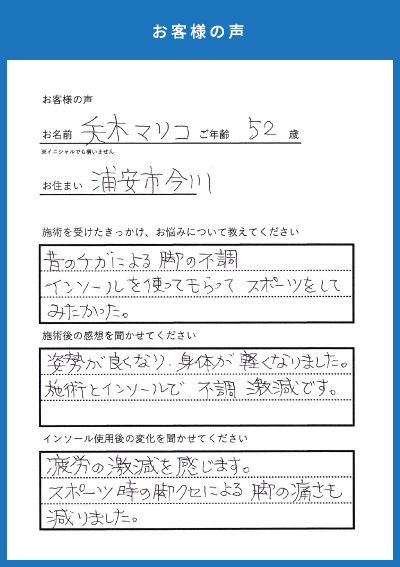 お客様の声
お客様の声
お名前 矢木マリコ ご年齢 52 歳
※イニシャルでも構いません
お住まい 浦安市今川
施術を受けたきっかけ、お悩みについて教えてください
昔のケガによる脚の不調
インソールを使ってもらって スポーツをして
みたかった。
施術後の感想を聞かせてください
姿勢が良くなり、身体が軽くなりました。
施術とインソールで 不調激減です。
インソール使用後の変化を聞かせてください
疲労の激減を感じます。
スポーツ時の脚クセによる脚の痛さも
減りました。